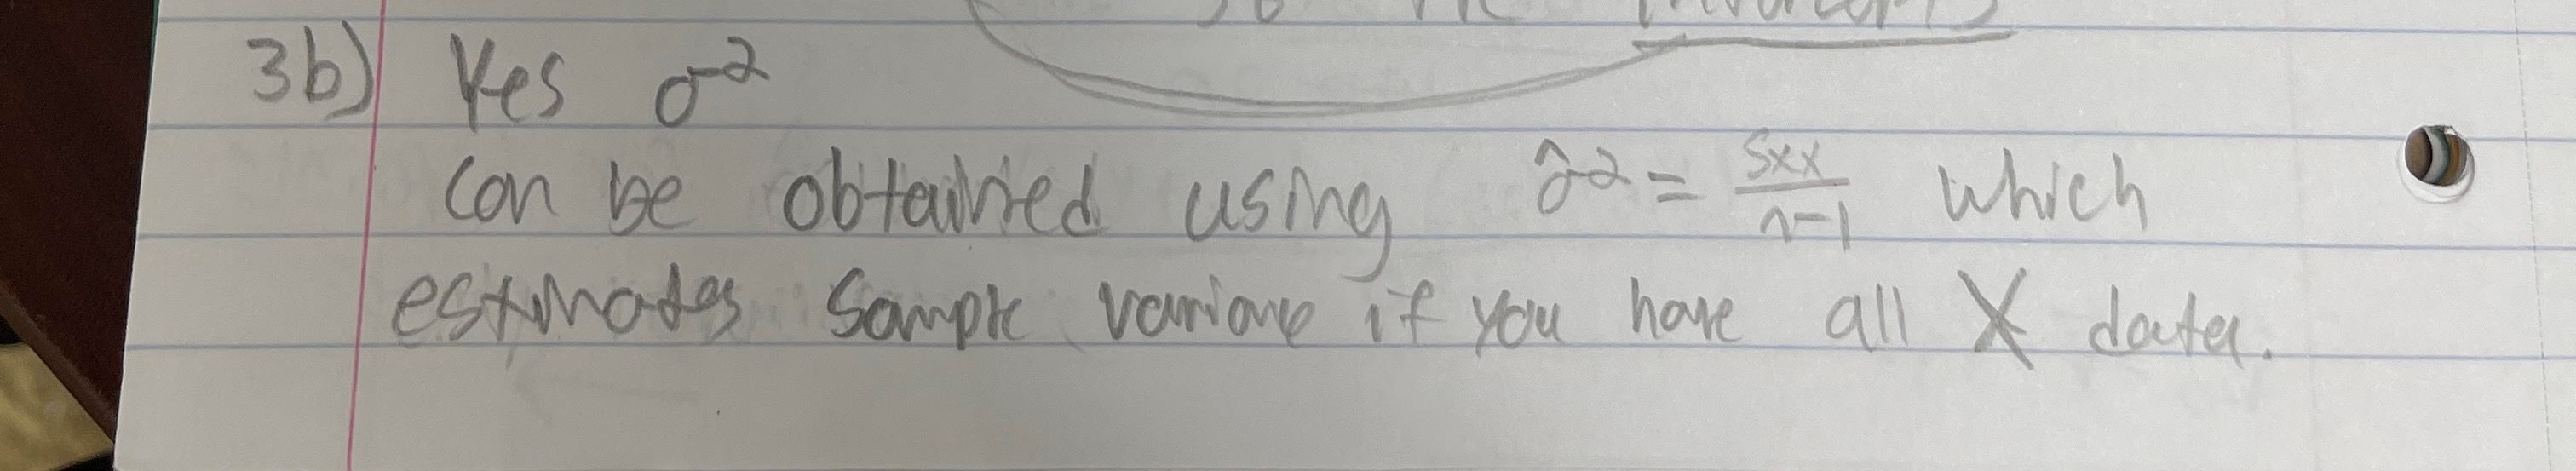 3b) Yes σ²
can be obtained using σ̂² = Sxx/n-1 which
estimates sample variance if you have all X data.